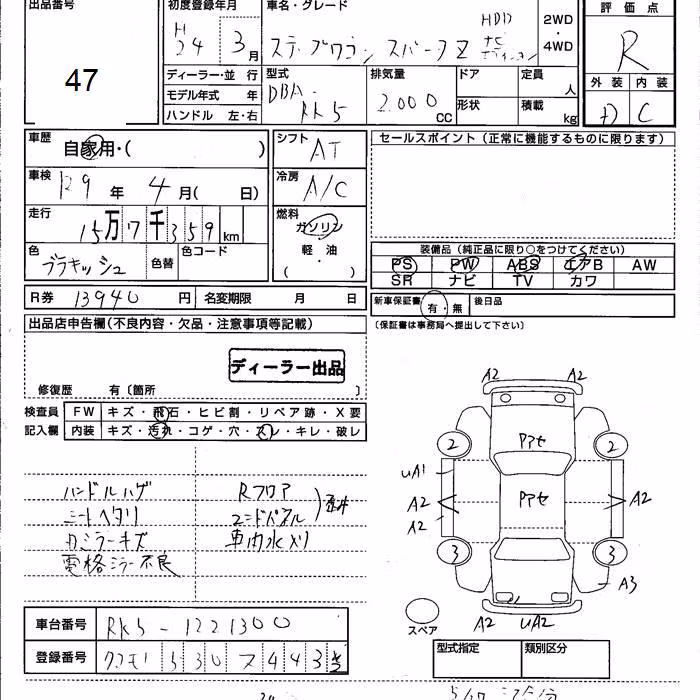 出品番号
47
初度登録年月
H24 3月
車名・グレード
ステップワゴン スパーダZ HDD ナビ
2WD・4WD
評価点
R
外装 内装
D C
ディーラー・並行
モデル年式 年
ハンドル 左・右
型式
DBA-RK5
排気量
2.000 CC
ドア
形状
定員 人
積載 kg
車歴
自家用・( )
シフト
AT
セールスポイント（正常に機能するものに限ります）
車検
R9年 4月( 日)
冷房
A/C
走行
15万7千359km
燃料
ガソリン
軽油
( )
色
ブラキッシュ
色替
色コード
装備品（純正品に限り○をつけてください）
PS PW ABS エアB AW
SR ナビ TV カワ
R券 13940円 名変期限 月 日
新車保証書 有・無 後日品
（保証書は事務局へ提出して下さい）
出品店申告欄(不良内容・欠品・注意事項等記載)
ディーラー出品
修復歴 有〔箇所 〕
検査員 FW キズ・飛石・ヒビ割・リペア跡・X要
記入欄 内装 キズ・汚れ・コゲ・穴・スレ・キレ・破レ
A2 A2
2 Pアセ 2
UA1
A2 Pアセ A2
A2
3 3
A3
スペア A2 UA2
ハンドルハゲ Rフロア
シートヘタリ エンドパネル
カミラーキズ 車内水メリ
電格ミラー不良
車台番号 RK5-1221300
登録番号 530 ス 443
型式指定 類別区分